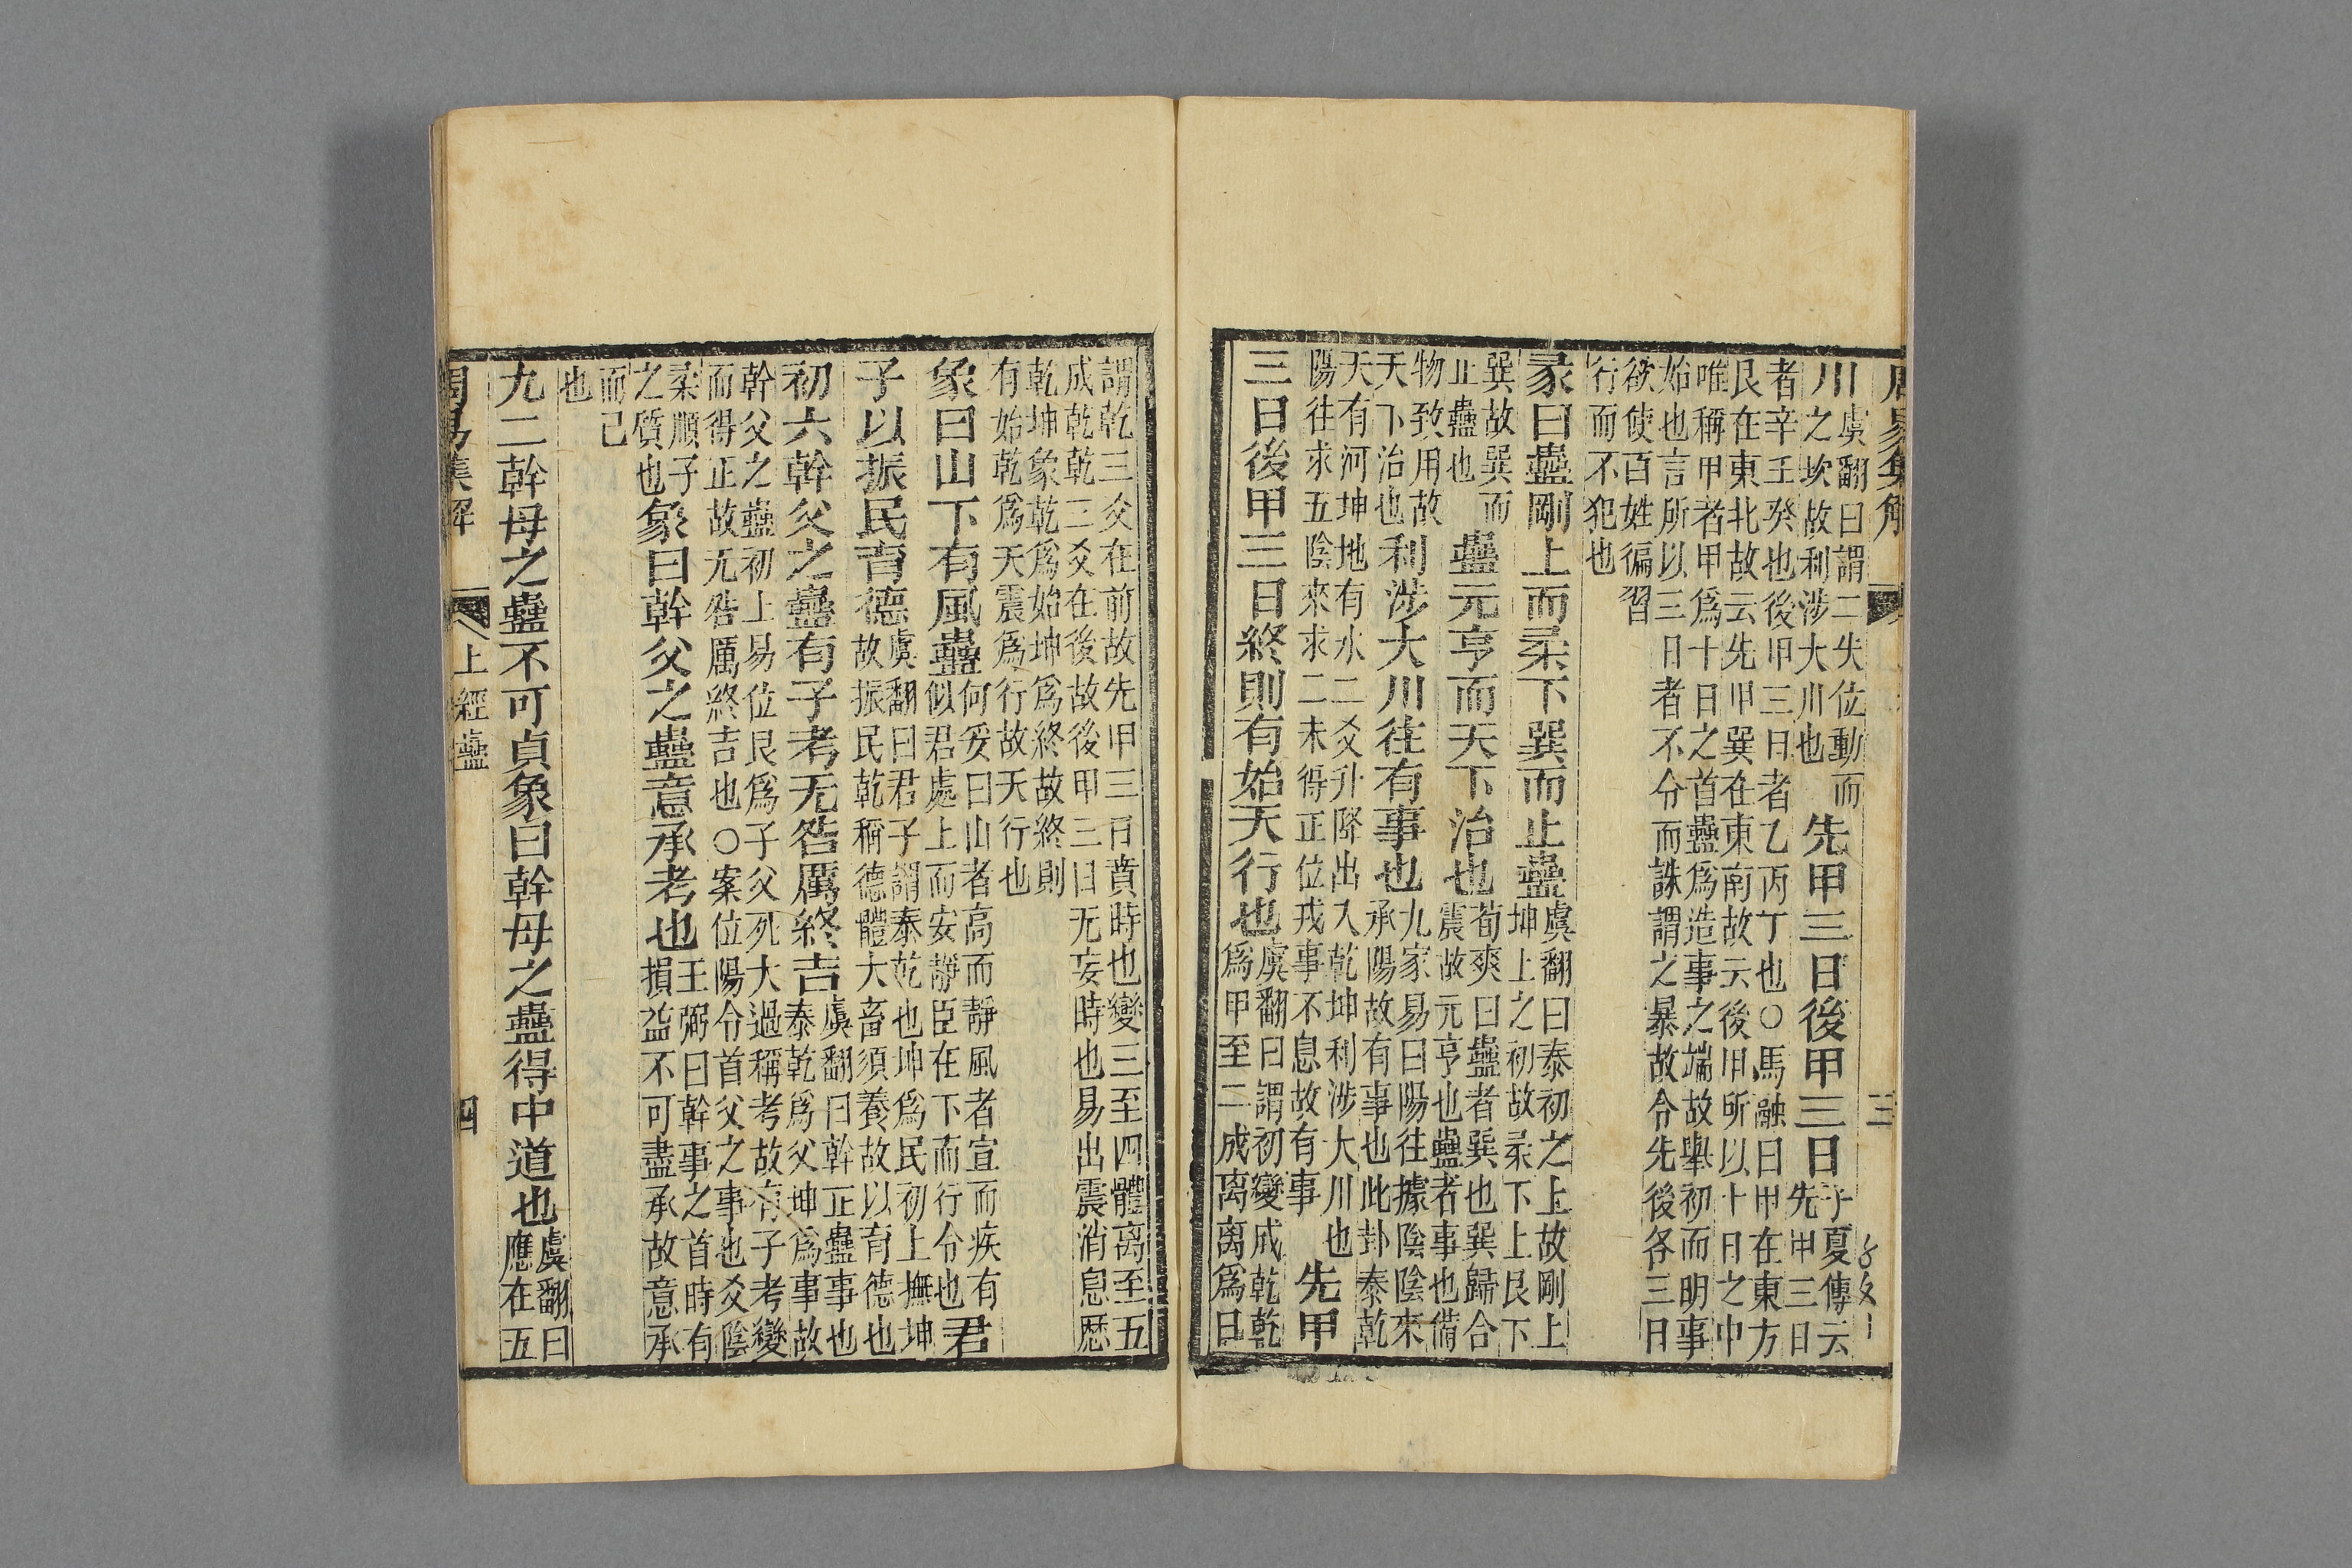 周易集解 三
川虞翻曰謂二失位動而之坎故利涉大川也先甲三日後甲三日子夏傳云先甲三日
者辛壬癸也後甲三日者乙丙丁也○馬融曰甲在東方
艮在東北故云先甲巽在東南故云後甲所以十日之中
唯稱甲者甲爲十日之首蠱爲造事之端故舉初而明事
始也言所以三日者不令而誅謂之暴故令先後各三日
欲使百姓徧習
行而不犯也
彖曰蠱剛上而柔下巽而止蠱虞翻曰泰初之上故剛上坤上之初故柔下上艮下
巽故巽而止蠱也蠱元亨而天下治也荀爽曰蠱者巽也巽歸合震故元亨也蠱者事也備
物致用故天下治也利涉大川往有事也九家易曰陽往據陰陰來承陽故有事也此卦泰乾
天有河坤地有水二爻升降出入乾坤利涉大川也陽往求五陰來求二未得正位戎事不息故有事先甲
三日後甲三日終則有始天行也虞翻曰謂初變成乾乾爲甲至二成离离爲日
謂乾三爻在前故先甲三日賁時也變三至四體离至五
成乾乾三爻在後故後甲三日无妄時也易出震消息厯
乾坤象乾爲始坤爲終故終則
有始乾爲天震爲行故天行也
象曰山下有風蠱何妥曰山者高而靜風者宣而疾有似君處上而安靜臣在下而行令也君
子以振民育德虞翻曰君子謂泰乾也坤爲民初上撫坤故振民乾稱德體大畜須養故以育德也
初六幹父之蠱有子考无咎厲終吉虞翻曰幹正蠱事也泰乾爲父坤爲事故
幹父之蠱初上易位艮爲子父死大過稱考故有子考變
而得正故无咎厲終吉也○案位陽令首父之事也爻陰
柔順子之質也象曰幹父之蠱意承考也王弼曰幹事之首時有損益不可盡承故意承
而已
也
九二幹母之蠱不可貞象曰幹母之蠱得中道也虞翻曰應在五
周易集解 上經蠱 四